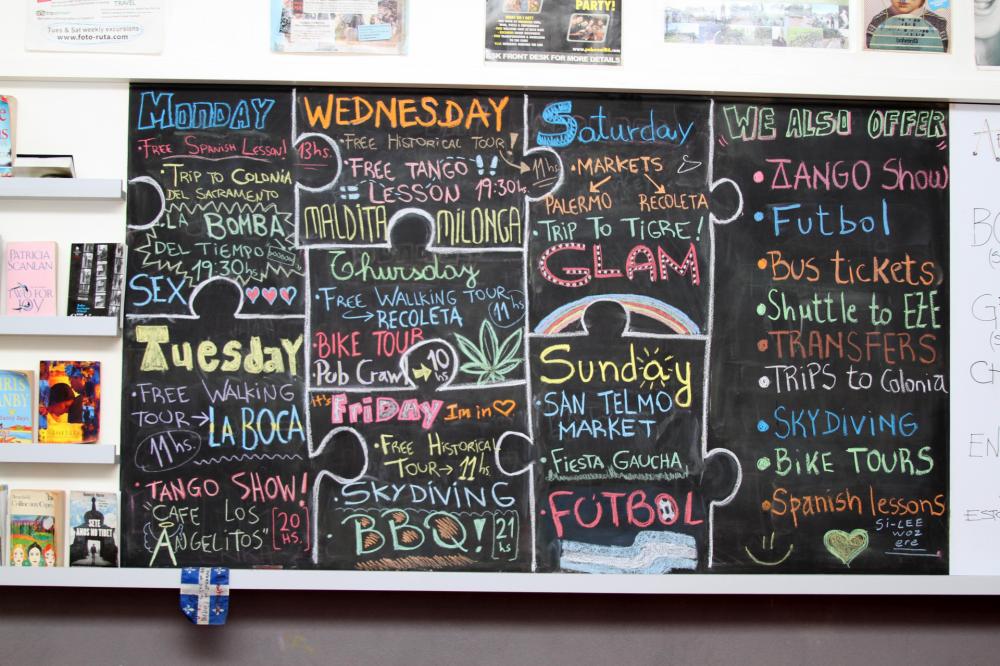 Tues & Sat weekly excursions
www.foto-ruta.com
PARTY!
ASK FRONT DESK FOR MORE DETAILS
MONDAY
• FREE SPANISH LESSON! 13hs.
• TRIP TO COLONIA
DEL SACRAMENTO
• LA BOMBA
DEL TIEMPO
19:30hs
SEX
TUESDAY
• FREE WALKING
TOUR → LA BOCA
11hs.
• TANGO SHOW!
"CAFE LOS
ANGELITOS"
20
HS.
WEDNESDAY
• FREE HISTORICAL TOUR! → 11hs.
• FREE TANGO
LESSON 19:30hs
MALDITA MILONGA
Thursday
• FREE WALLKING TOUR
→ RECOLETA
11hs
BIKE TOUR
Pub Crawl → 10
hs
it's FRIDAY I'm in
• FREE HISTORICAL
TOUR → 11hs
• SKYDIVING
• BBQ!
21
hs
Saturday
• MARKETS
PALERMO RECOLETA
• TRIP TO TIGRE!
GLAM
Sunday
• SAN TELMO
MARKET
• FIESTA GAUCHA
• FÚTBOL
"WE ALSO OFFER"
• TANGO Show
• Futbol
• Bus tickets
• Shuttle to EZE
• TRANSFERS
• TRIPS to Colonia
• SKYDIVING
• BIKE TOURS
• Spanish lessons
SI-LEE
woz
ere
PATRICIA
SCANLAN
TWO FOR
JOY
SIETE
AÑOS EN TIBET